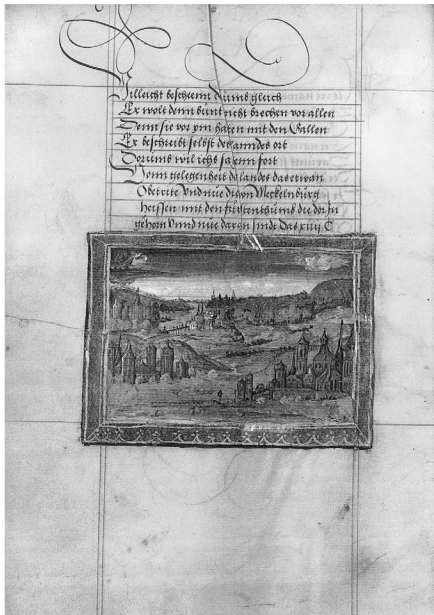 Villeicht beschemt dums gluch
Er wolt denn bunt nicht brechen vor allen
Denn sie vor ym haten mit den Gallen
Er beschreibt selbst des anndes ort
Dorumb wil ichs sagenn fort
Vonn gelegenheit do landes das etwan
Obetrite Vnd nue die von Meckelnburg
heissen mit den furstenthumb die dor In
gehorn Vnnd nue daran sindt Das xiiij C